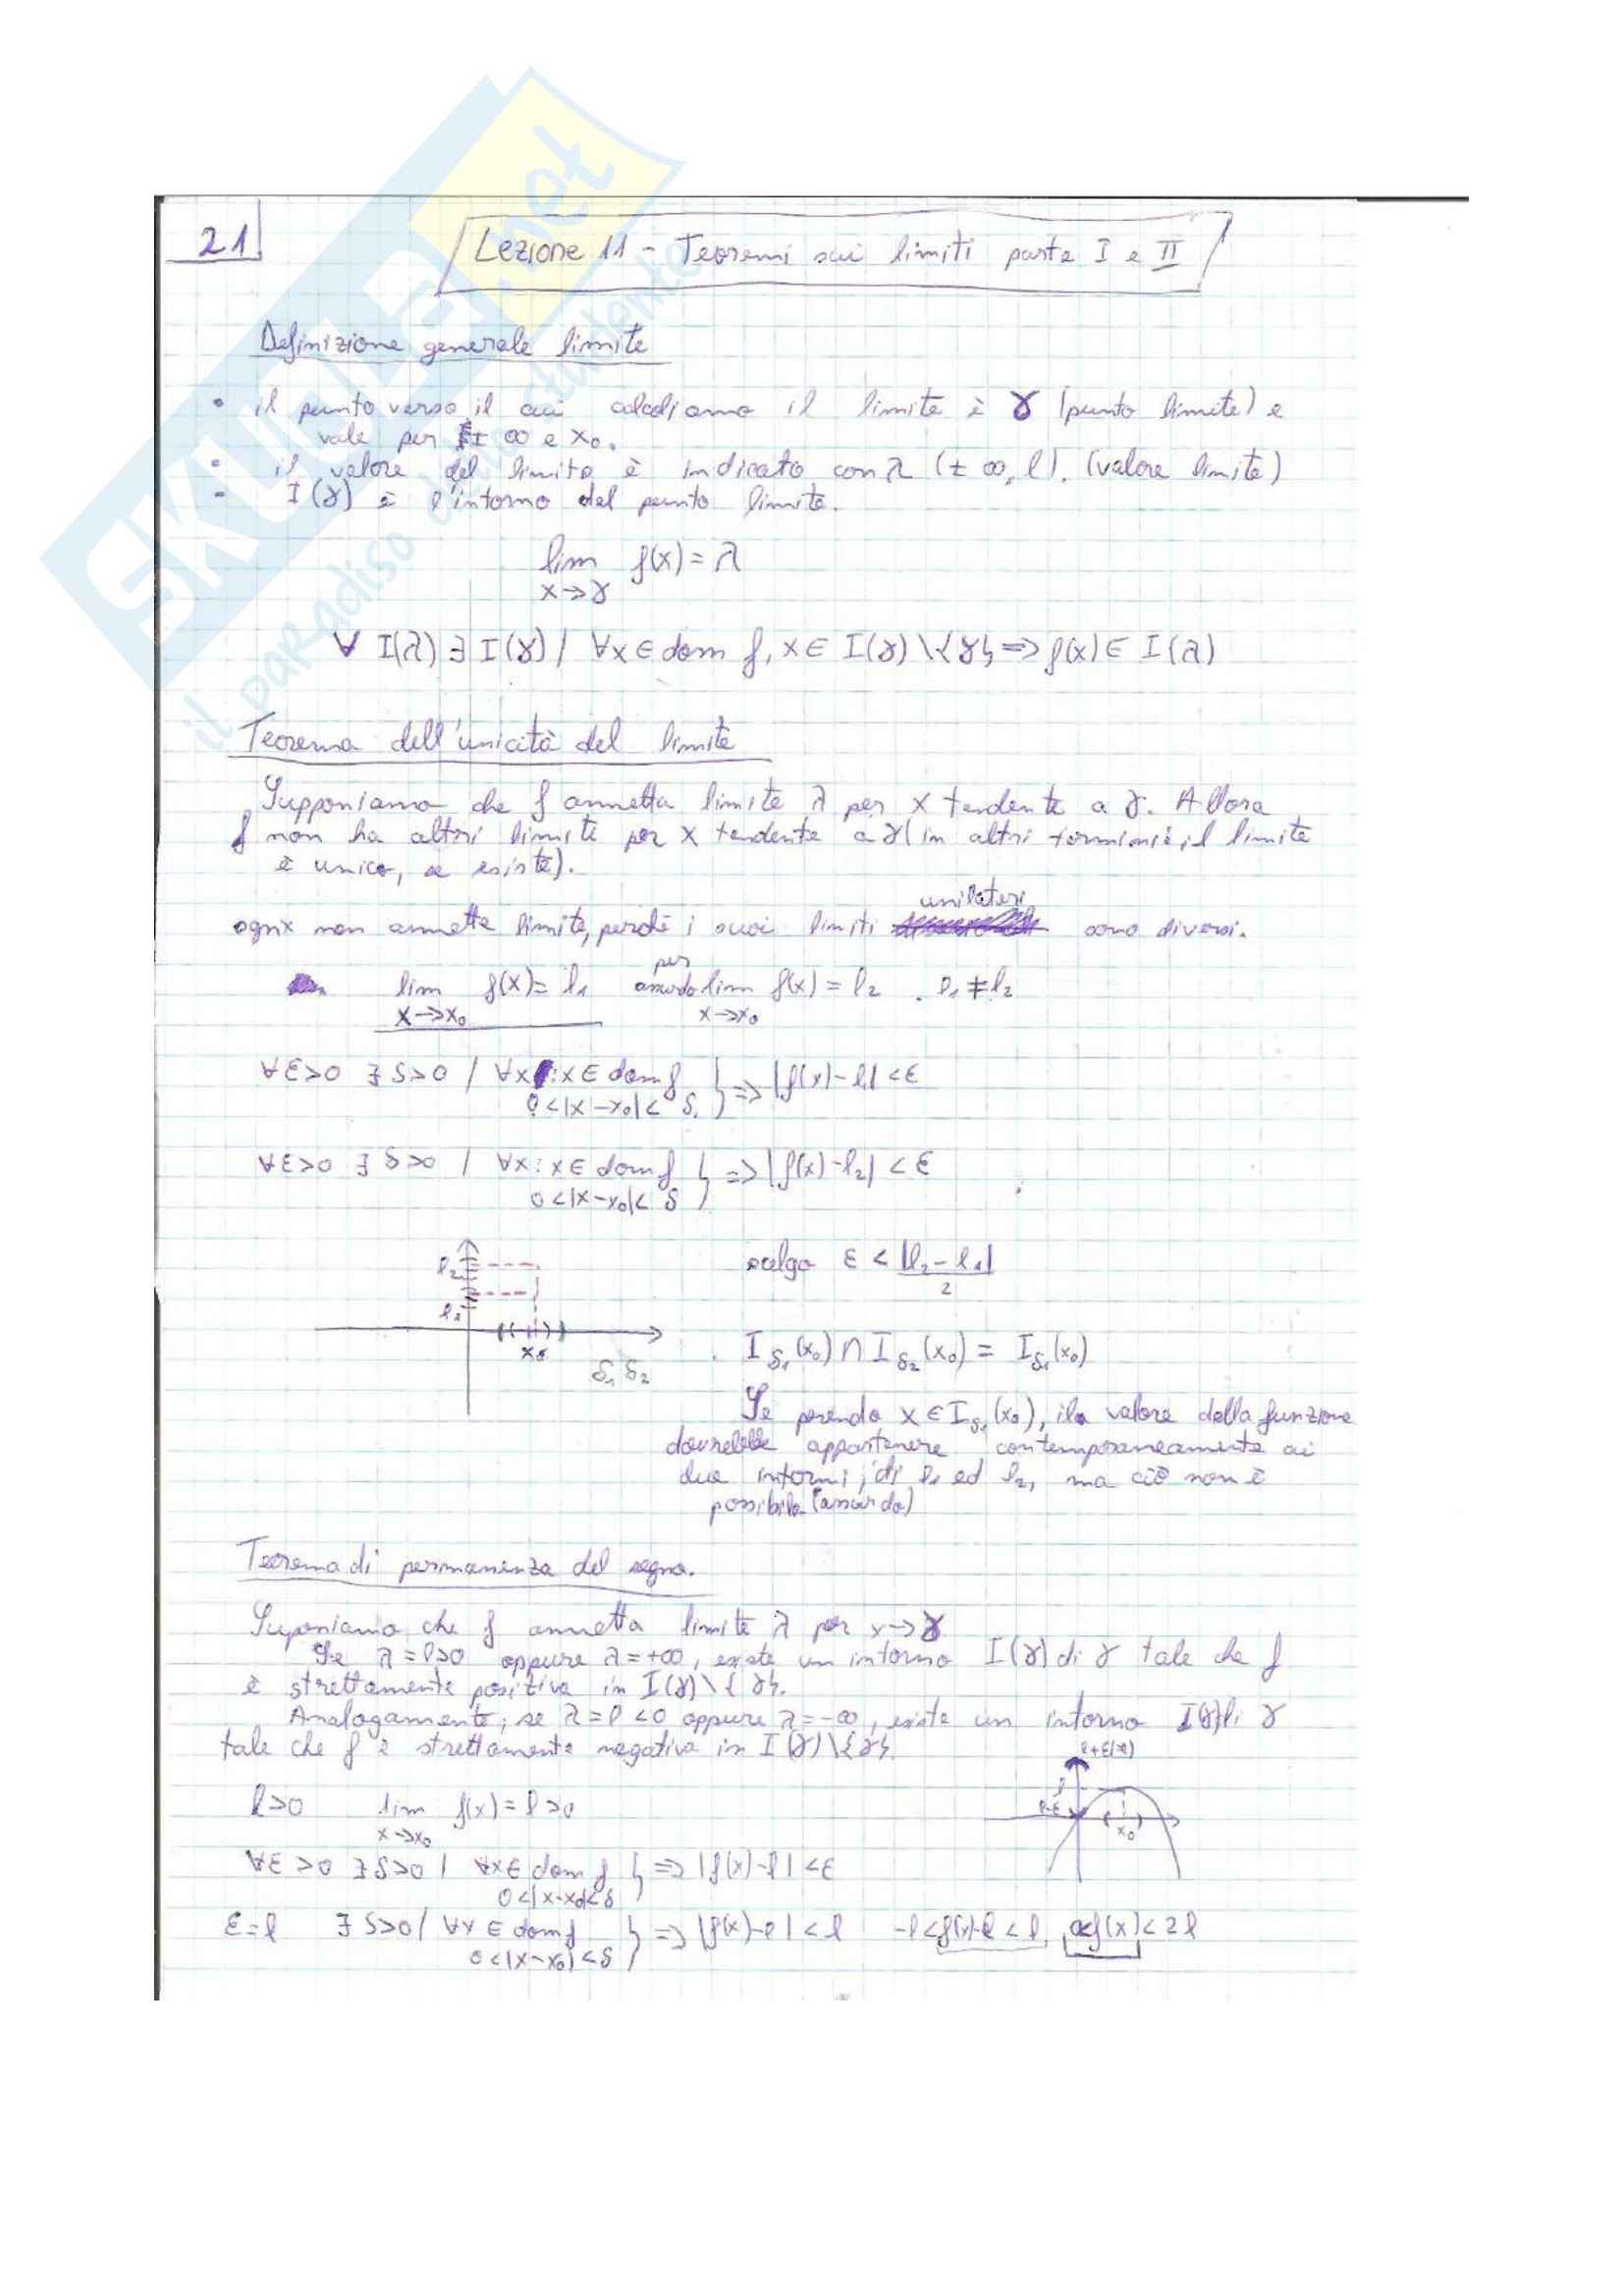 21
Lezione 11 - Teoremi sui limiti parte I e II
Definizione generale limite
• il punto verso il cui calcoliamo il limite è γ (punto limite) e
vale per ± ∞ e x₀.
• il valore del limite è indicato con λ (± ∞, l). (valore limite)
- I(γ) è l'intorno del punto limite.
lim f(x) = λ
x→γ
∀ I(λ) ∃ I(γ) / ∀x ∈ dom f, x ∈ I(γ) \ {γ} => f(x) ∈ I(λ)
Teorema dell'unicità del limite
Supponiamo che f ametta limite λ per x tendente a γ. Allora
f non ha altri limiti per x tendente a γ (in altri termini: il limite
è unico, se esiste).
unilateri
non ametta limite, perché i suoi limiti sono diversi.
per
lim f(x) = l₁ assurdo lim f(x) = l₂ . l₁ ≠ l₂
x→x₀ x→x₀
∀ε>0 ∃ δ>0 / ∀x : x ∈ dom f } => |f(x) - l₁| < ε
0<|x-x₀|< δ₁
∀ε>0 ∃ δ>0 / ∀x : x ∈ dom f } => |f(x) - l₂| < ε
0<|x-x₀|< δ
l₂
l₁
x₀
δ₁ δ₂
scelgo ε < |l₂ - l₁|
2
I δ₁ (x₀) ∩ I δ₂ (x₀) = I δ₁ (x₀)
Se prendo x ∈ I δ₁ (x₀), il valore della funzione
dovrebbe appartenere contemporaneamente ai
due intorni, di l₁ ed l₂, ma ciò non è
possibile (assurdo)
Teorema di permanenza del segno.
Suponiamo che f ametta limite λ per x→γ
Se λ = l>0 oppure λ = +∞, existe un intorno I(γ) di γ tale che f
è strettamente positiva in I(γ) \ {γ}.
Analogamente, se λ = l <0 oppure λ = -∞, existe un intorno I(γ) di γ
tale che f è strettamente negativa in I(γ) \ {γ}.
l
l-ε
x₀
l>0 lim f(x) = l >0
x→x₀
∀ε >0 ∃ δ>0 | ∀x ∈ dom f } => |f(x) - l| < ε
0<|x-x₀|<δ
ε = l ∃ δ>0 / ∀x ∈ dom f } => |f(x) - l| < l -l < f(x) - l < l, 0<f(x) < 2l
0<|x-x₀|<δ
SKUOLA.net
il paradiso dello studente